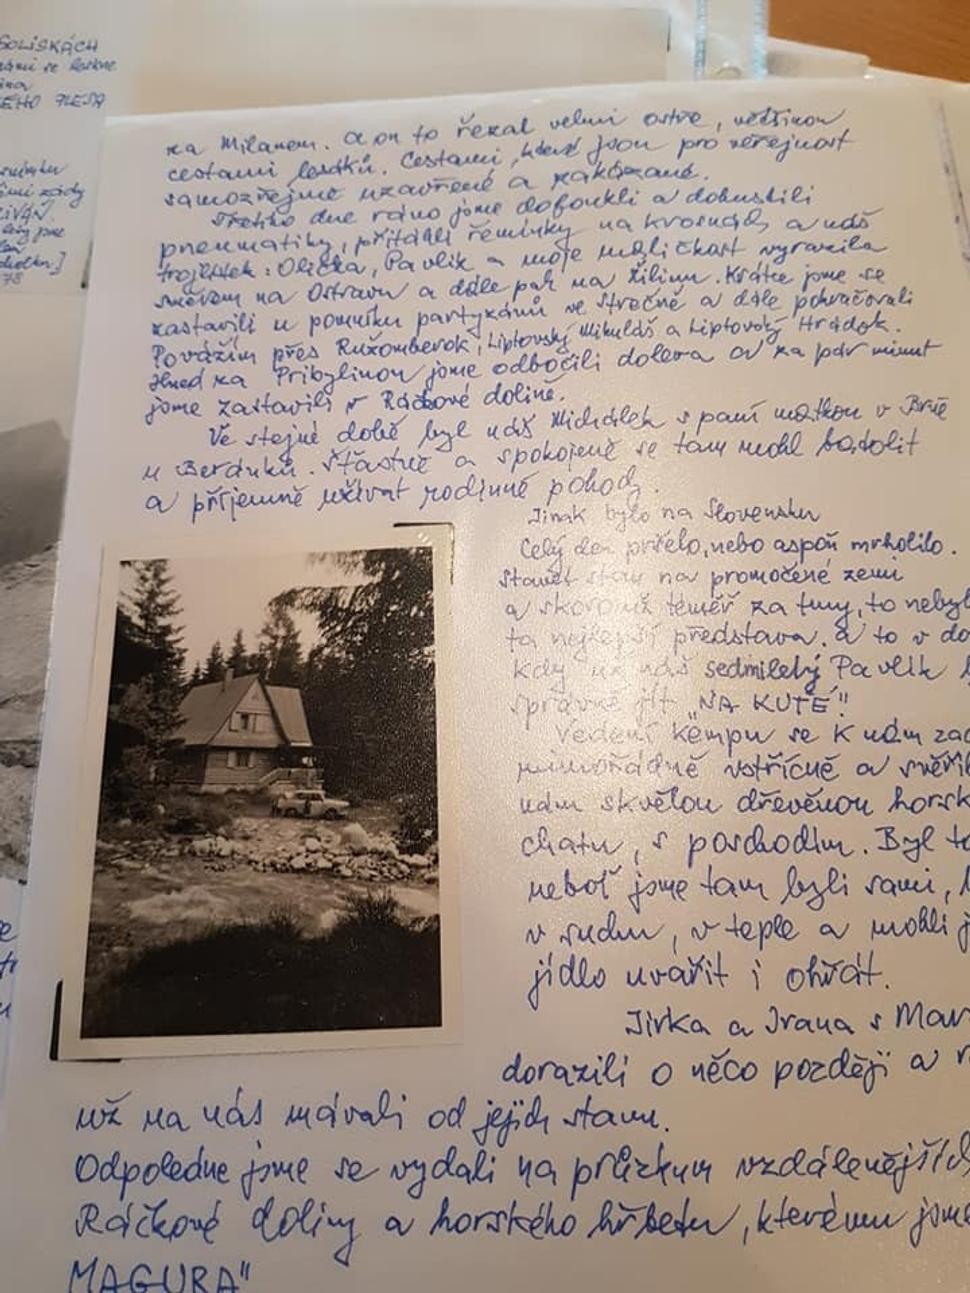 SOLISKÁCH
námi se leskne
ÉHO PLESA
zády
78
za Milanem. A on to řezal velmi ostře, většinou
cestami lesáků. Cestami, které jsou pro veřejnost
samozřejmě uzavřené a zakázané.
Třetího dne ráno jsme dofoukli a dohustili
pneumatiky, přitáhli řemínky na krosnách a náš
trojlístek: Olička, Pavlík a moje maličkost vyrazila
směrem na Ostravu a dále pak na Žilinu. Krátce jsme se
zastavili u pomníku partyzánů ve Strečně a dále pokračovali
Považím přes Ružomberok, Liptovský Mikuláš a Liptovský Hrádok.
Hned za Pribylinou jsme odbočili doleva a za pár minut
jsme zastavili v Ráčkové dolině.
Ve stejné době byl náš Michálek s paní matkou v Brně
u Berduků. Šťastně a spokojeně se tam mohl batolit
a příjemně užívat rodinné pohody.
Jinak bylo na Slovensku
Celý den pršelo, nebo aspoň mrholilo.
Stavět stan na promočené zemi
a skoro už téměř za tmy, to nebyl
ta nejlepší představa. A to v do
kdy už náš sedmiletý Pavlík
správně jít „NA KUTĚ".
Vedení kempu se k nám zac
mimořádně vstřícně a svěřil
nám skvělou dřevěnou horsk
chatu, s poschodím. Byl to
neboť jsme tam byli sami,
v suchu, v teple a mohli j
jídlo uvářit i ohřát.
Jirka a Ivana s Mar
dorazili o něco později a
už na nás mávali od jejich stanu.
Odpoledne jsme se vydali na průzkum vzdálenějších
Ráčkové doliny a horského hřbetu, kterému jsme
MAGURA"